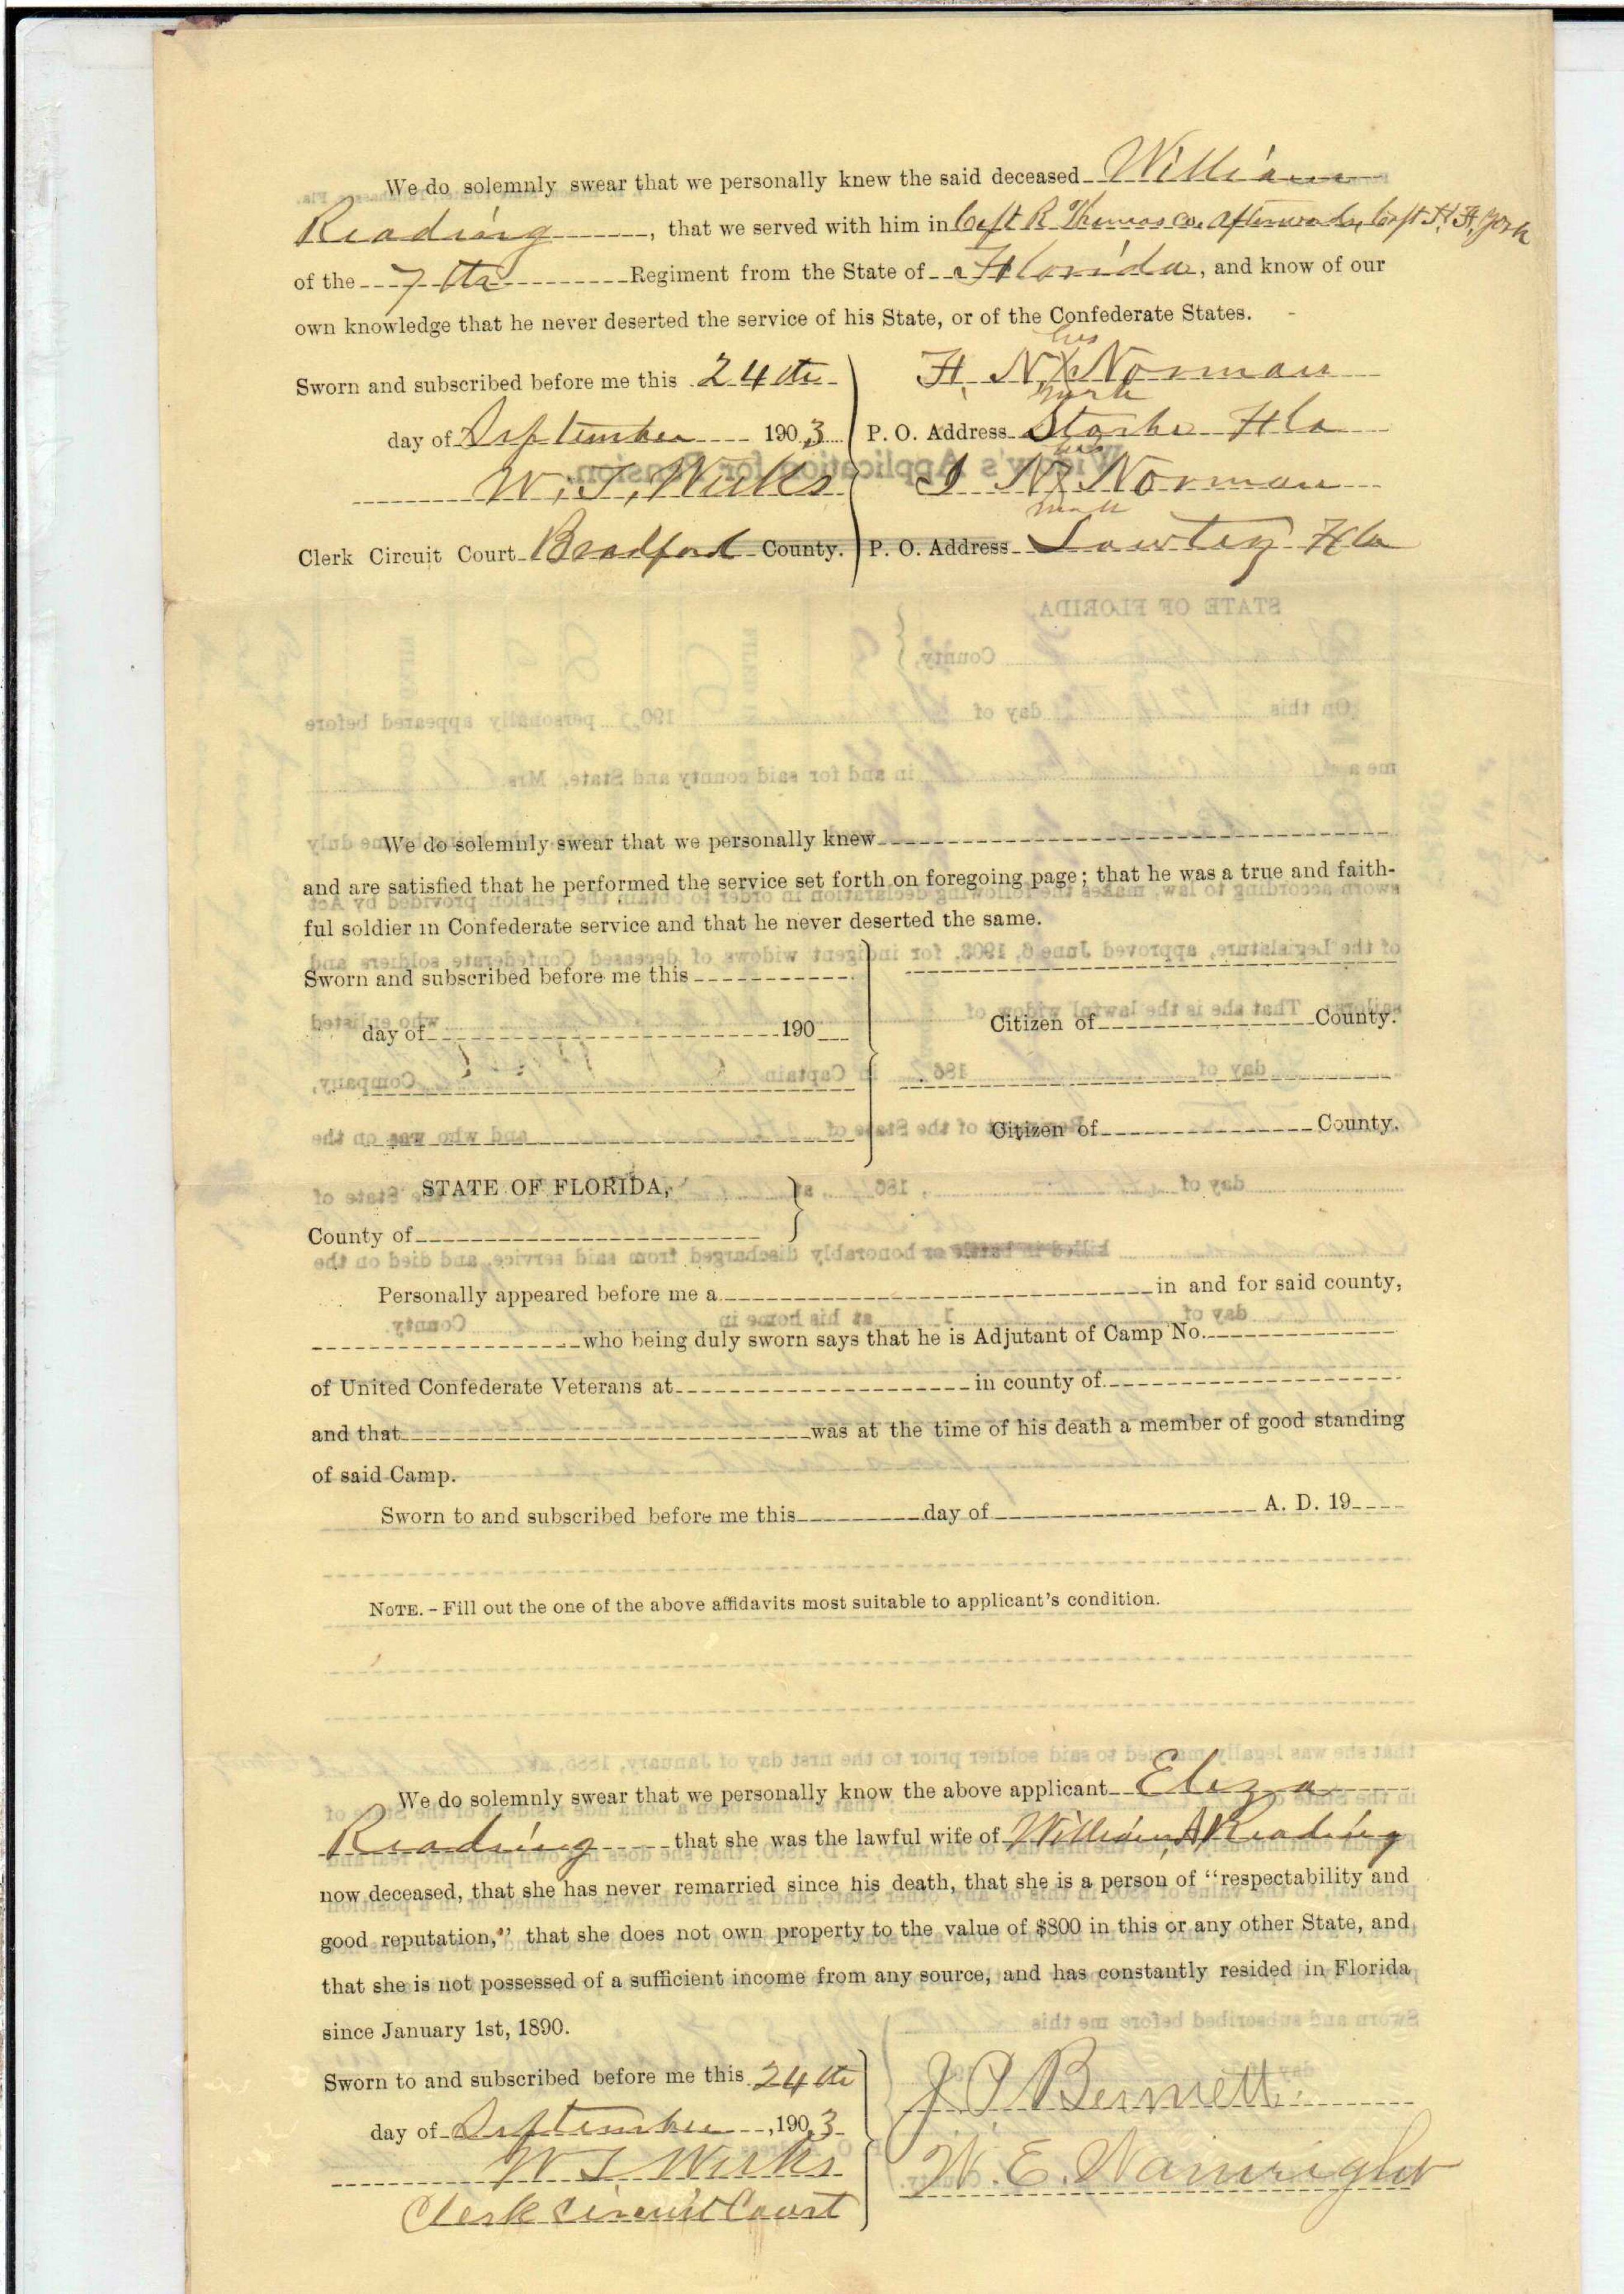 We do solemnly swear that we personally knew the said deceased William
Reading, that we served with him in Capt R Thomas co. afterwards Capt H. F. York
of the 7th Regiment from the State of Florida, and know of our
own knowledge that he never deserted the service of his State, or of the Confederate States.
his
Sworn and subscribed before me this 24th F. N. X Norman
mark
day of September 1903 P. O. Address Starke Fla
his
W. T. Weeks J N X Norman
mark
Clerk Circuit Court Bradford County. P. O. Address Lawtey Fla
We do solemnly swear that we personally knew
and are satisfied that he performed the service set forth on foregoing page; that he was a true and faith-
ful soldier in Confederate service and that he never deserted the same.
Sworn and subscribed before me this
day of 190 Citizen of County.
Citizen of County.
STATE OF FLORIDA,
County of
Personally appeared before me a in and for said county,
who being duly sworn says that he is Adjutant of Camp No.
of United Confederate Veterans at in county of
and that was at the time of his death a member of good standing
of said Camp.
Sworn to and subscribed before me this day of A. D. 19
NOTE. - Fill out the one of the above affidavits most suitable to applicant's condition.
We do solemnly swear that we personally know the above applicant Eliza
Reading that she was the lawful wife of William A Reading
now deceased, that she has never remarried since his death, that she is a person of "respectability and
good reputation," that she does not own property to the value of $800 in this or any other State, and
that she is not possessed of a sufficient income from any source, and has constantly resided in Florida
since January 1st, 1890.
Sworn to and subscribed before me this 24th
day of September, 1903 J. P. Bennett
W T Weeks W. E. Wainright
Clerk Circuit Court